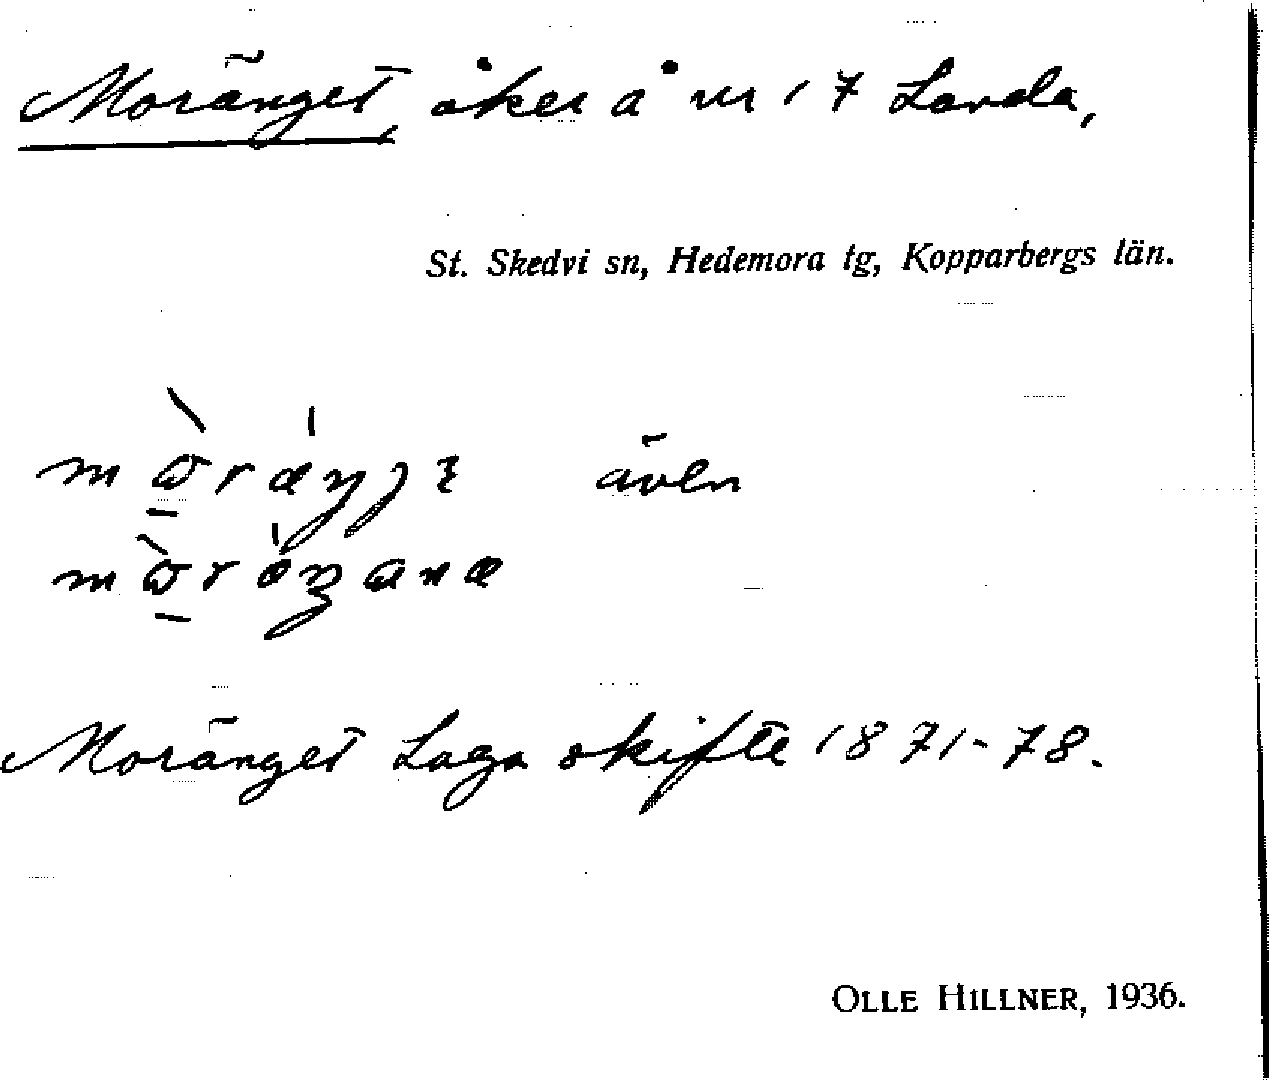 Moränget åker å nr 17 Landa,
St. Skedvi sn, Hedemora tg, Kopparbergs län.
även
Moränget Laga skifte 1871-78.
OLLE HILLNER, 1936.